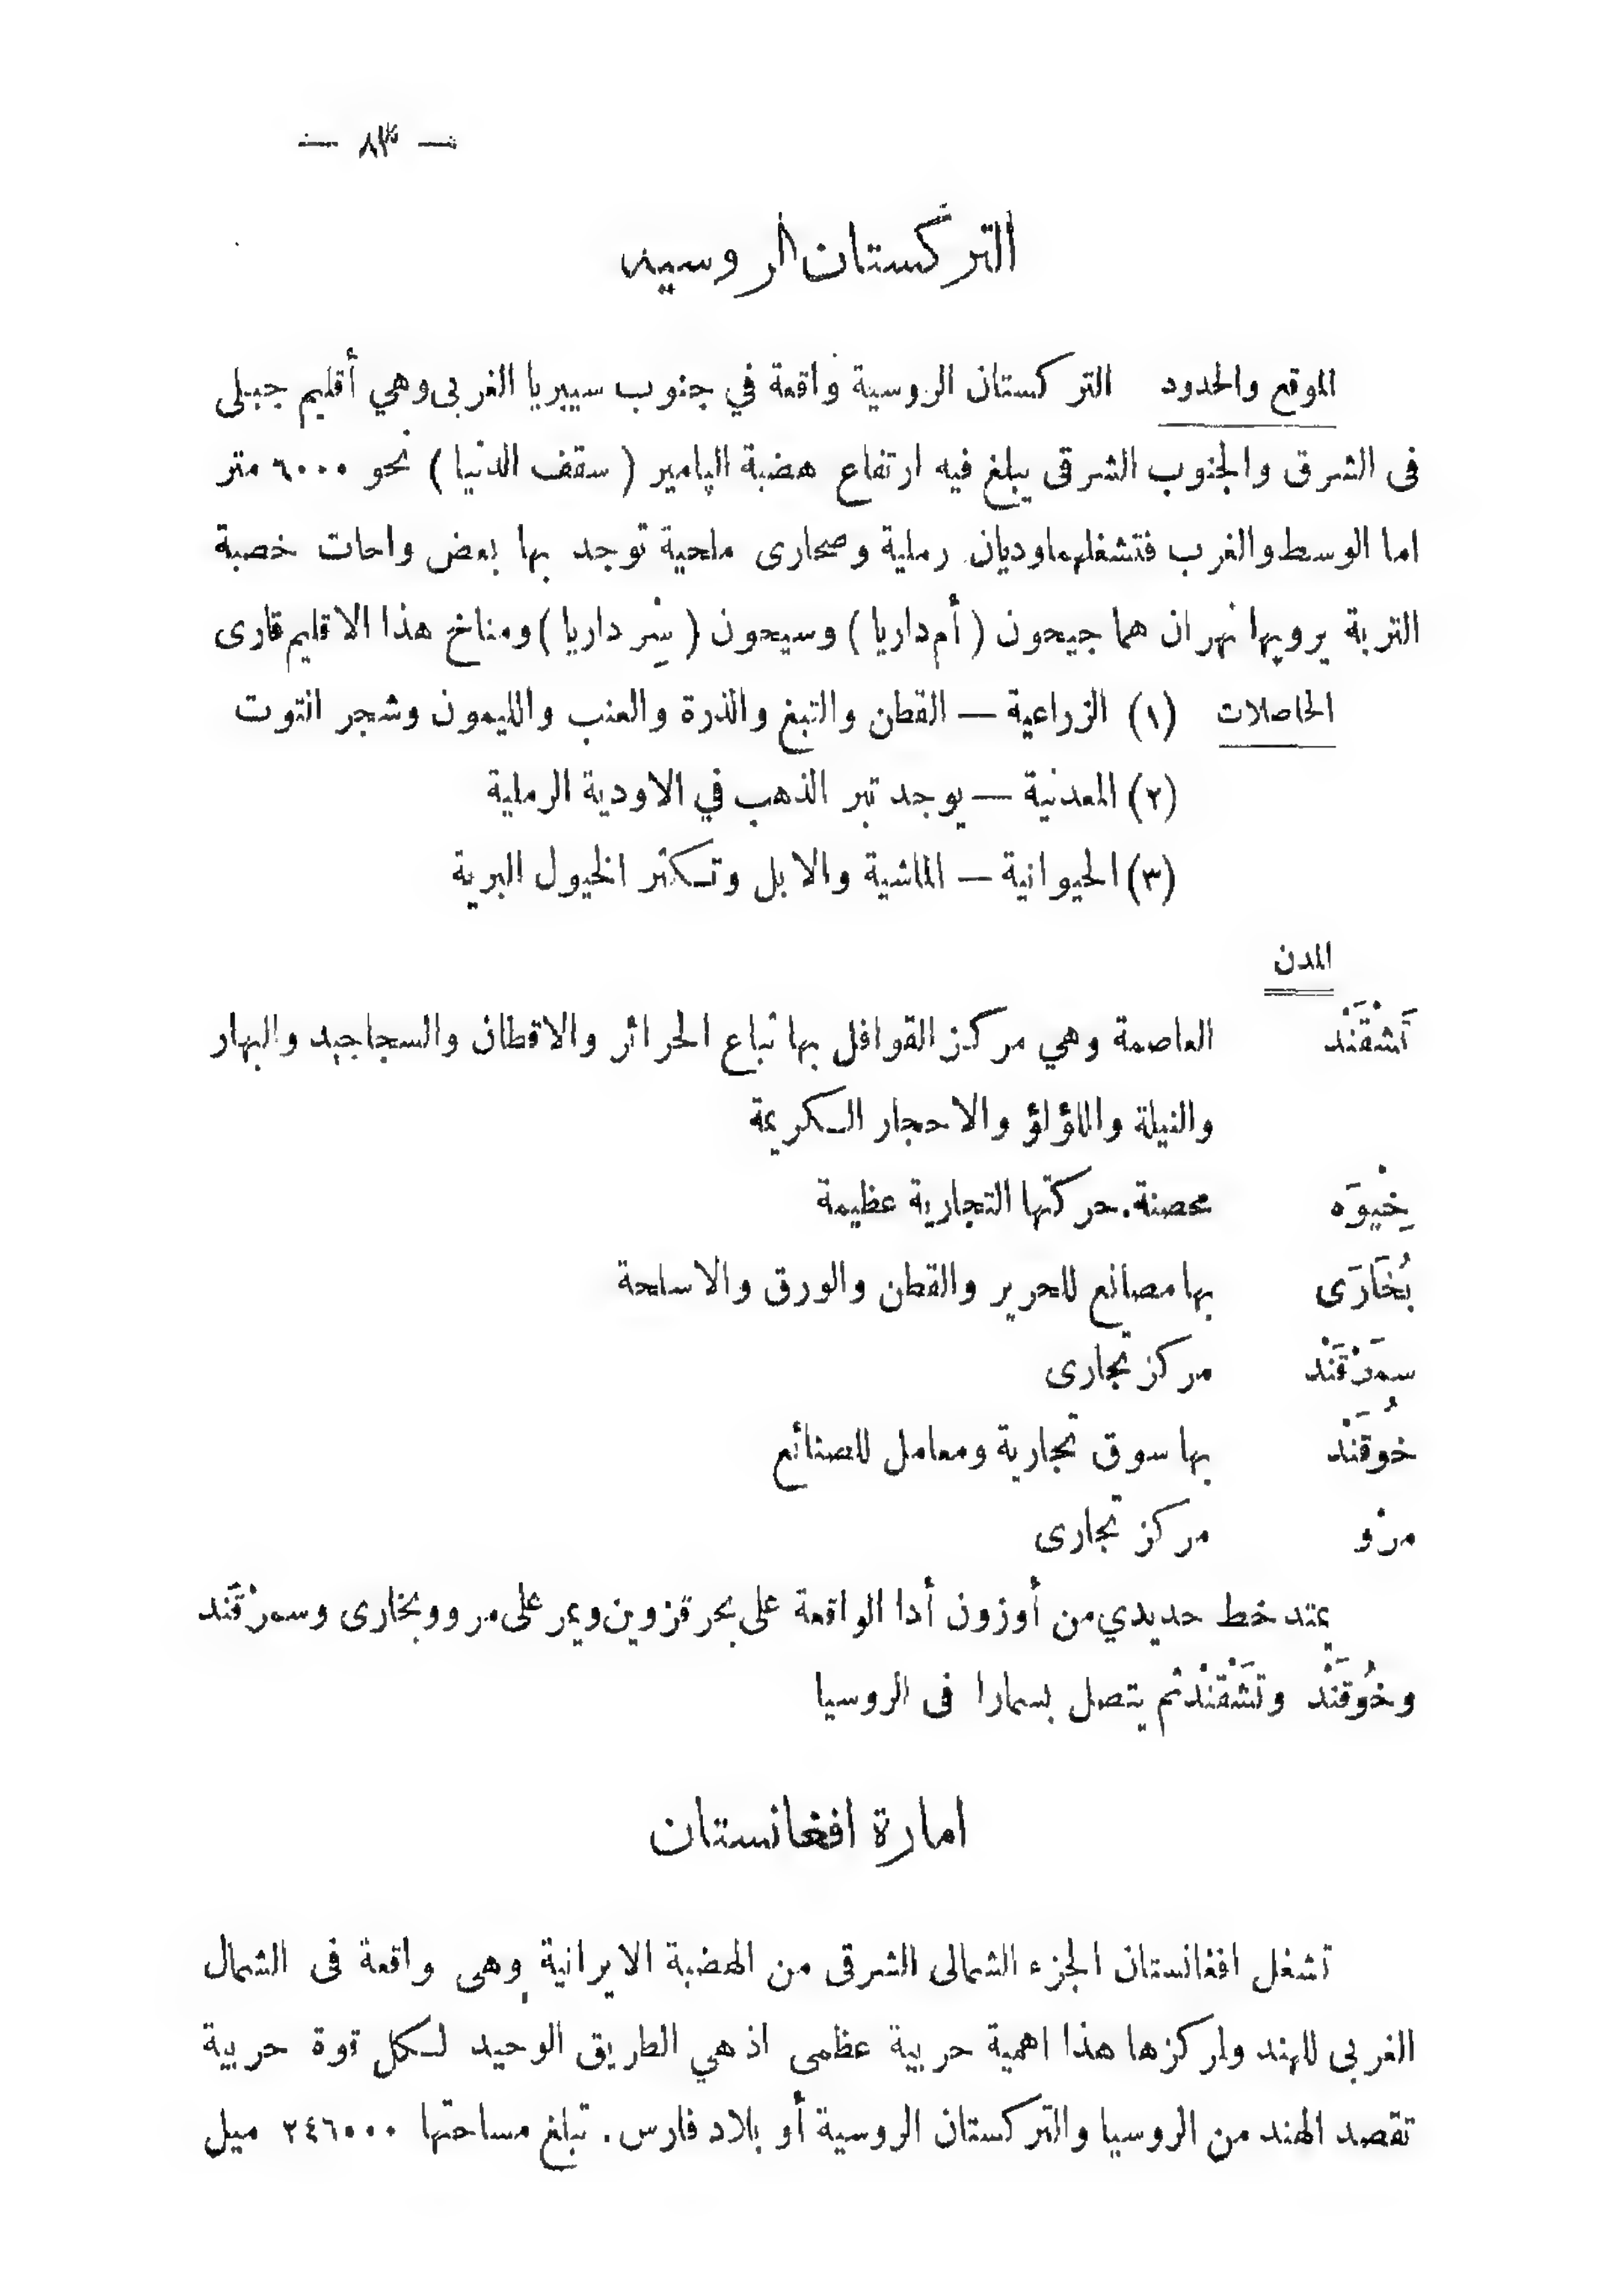 — ٨٣ —
التركستان الروسيه
الموقع والحدود التركستان الروسية واقعة في جنوب سيبريا الغربى وهي أقليم جبلى
فى الشرق والجنوب الشرقى يبلغ فيه ارتفاع هضبة الپامير ( سقف الدنيا ) نحو ٦٠٠٠ متر
اما الوسط والغرب فتشغلهما وديان رملية وصحارى ملحية توجد بها بعض واحات خصبة
التربة يرويها نهران هما جيحون ( أم داريا ) وسيحون ( سِرْ داريا ) ومناخ هذا الاقليم قارى
الحاصلات (١) الزراعية — القطن والتبغ والذرة والعنب والليمون وشجر التوت
(٢) المعدنية — يوجد تبر الذهب في الاودية الرملية
(٣) الحيوانية — الماشية والابل وتكثر الخيول البرية
المدن
تَشْقَنْد العاصمة وهي مركز القوافل بها تباع الحرائر والاقطان والسجاجيد والبهار
والنيلة واللؤلؤ والاحجار الكريمة
خِيْوَه محصنة. حركتها التجارية عظيمة
بُخَارَى بها مصانع للحرير والقطن والورق والاسلحة
سمَرْقَنْد مركز تجارى
خُوقَنْد بها سوق تجارية ومعامل للصنائع
مرْو مركز تجارى
يمتد خط حديدي من أوزون أدا الواقعة على بحر قزوين ويمر على مرو وبخارى وسمرْقَند
وخُوقَنْد وتَشْقَنْد ثم يتصل بسمارا فى الروسيا
امارة افغانستان
تشغل افغانستان الجزء الشمالى الشرقى من الهضبة الايرانية وهى واقعة فى الشمال
الغربى للهند ولمركزها هذا اهمية حربية عظمى اذ هي الطريق الوحيد لكل قوة حربية
تقصد الهند من الروسيا والتركستان الروسية أو بلاد فارس. تبلغ مساحتها ٢٤٦٠٠٠ ميل